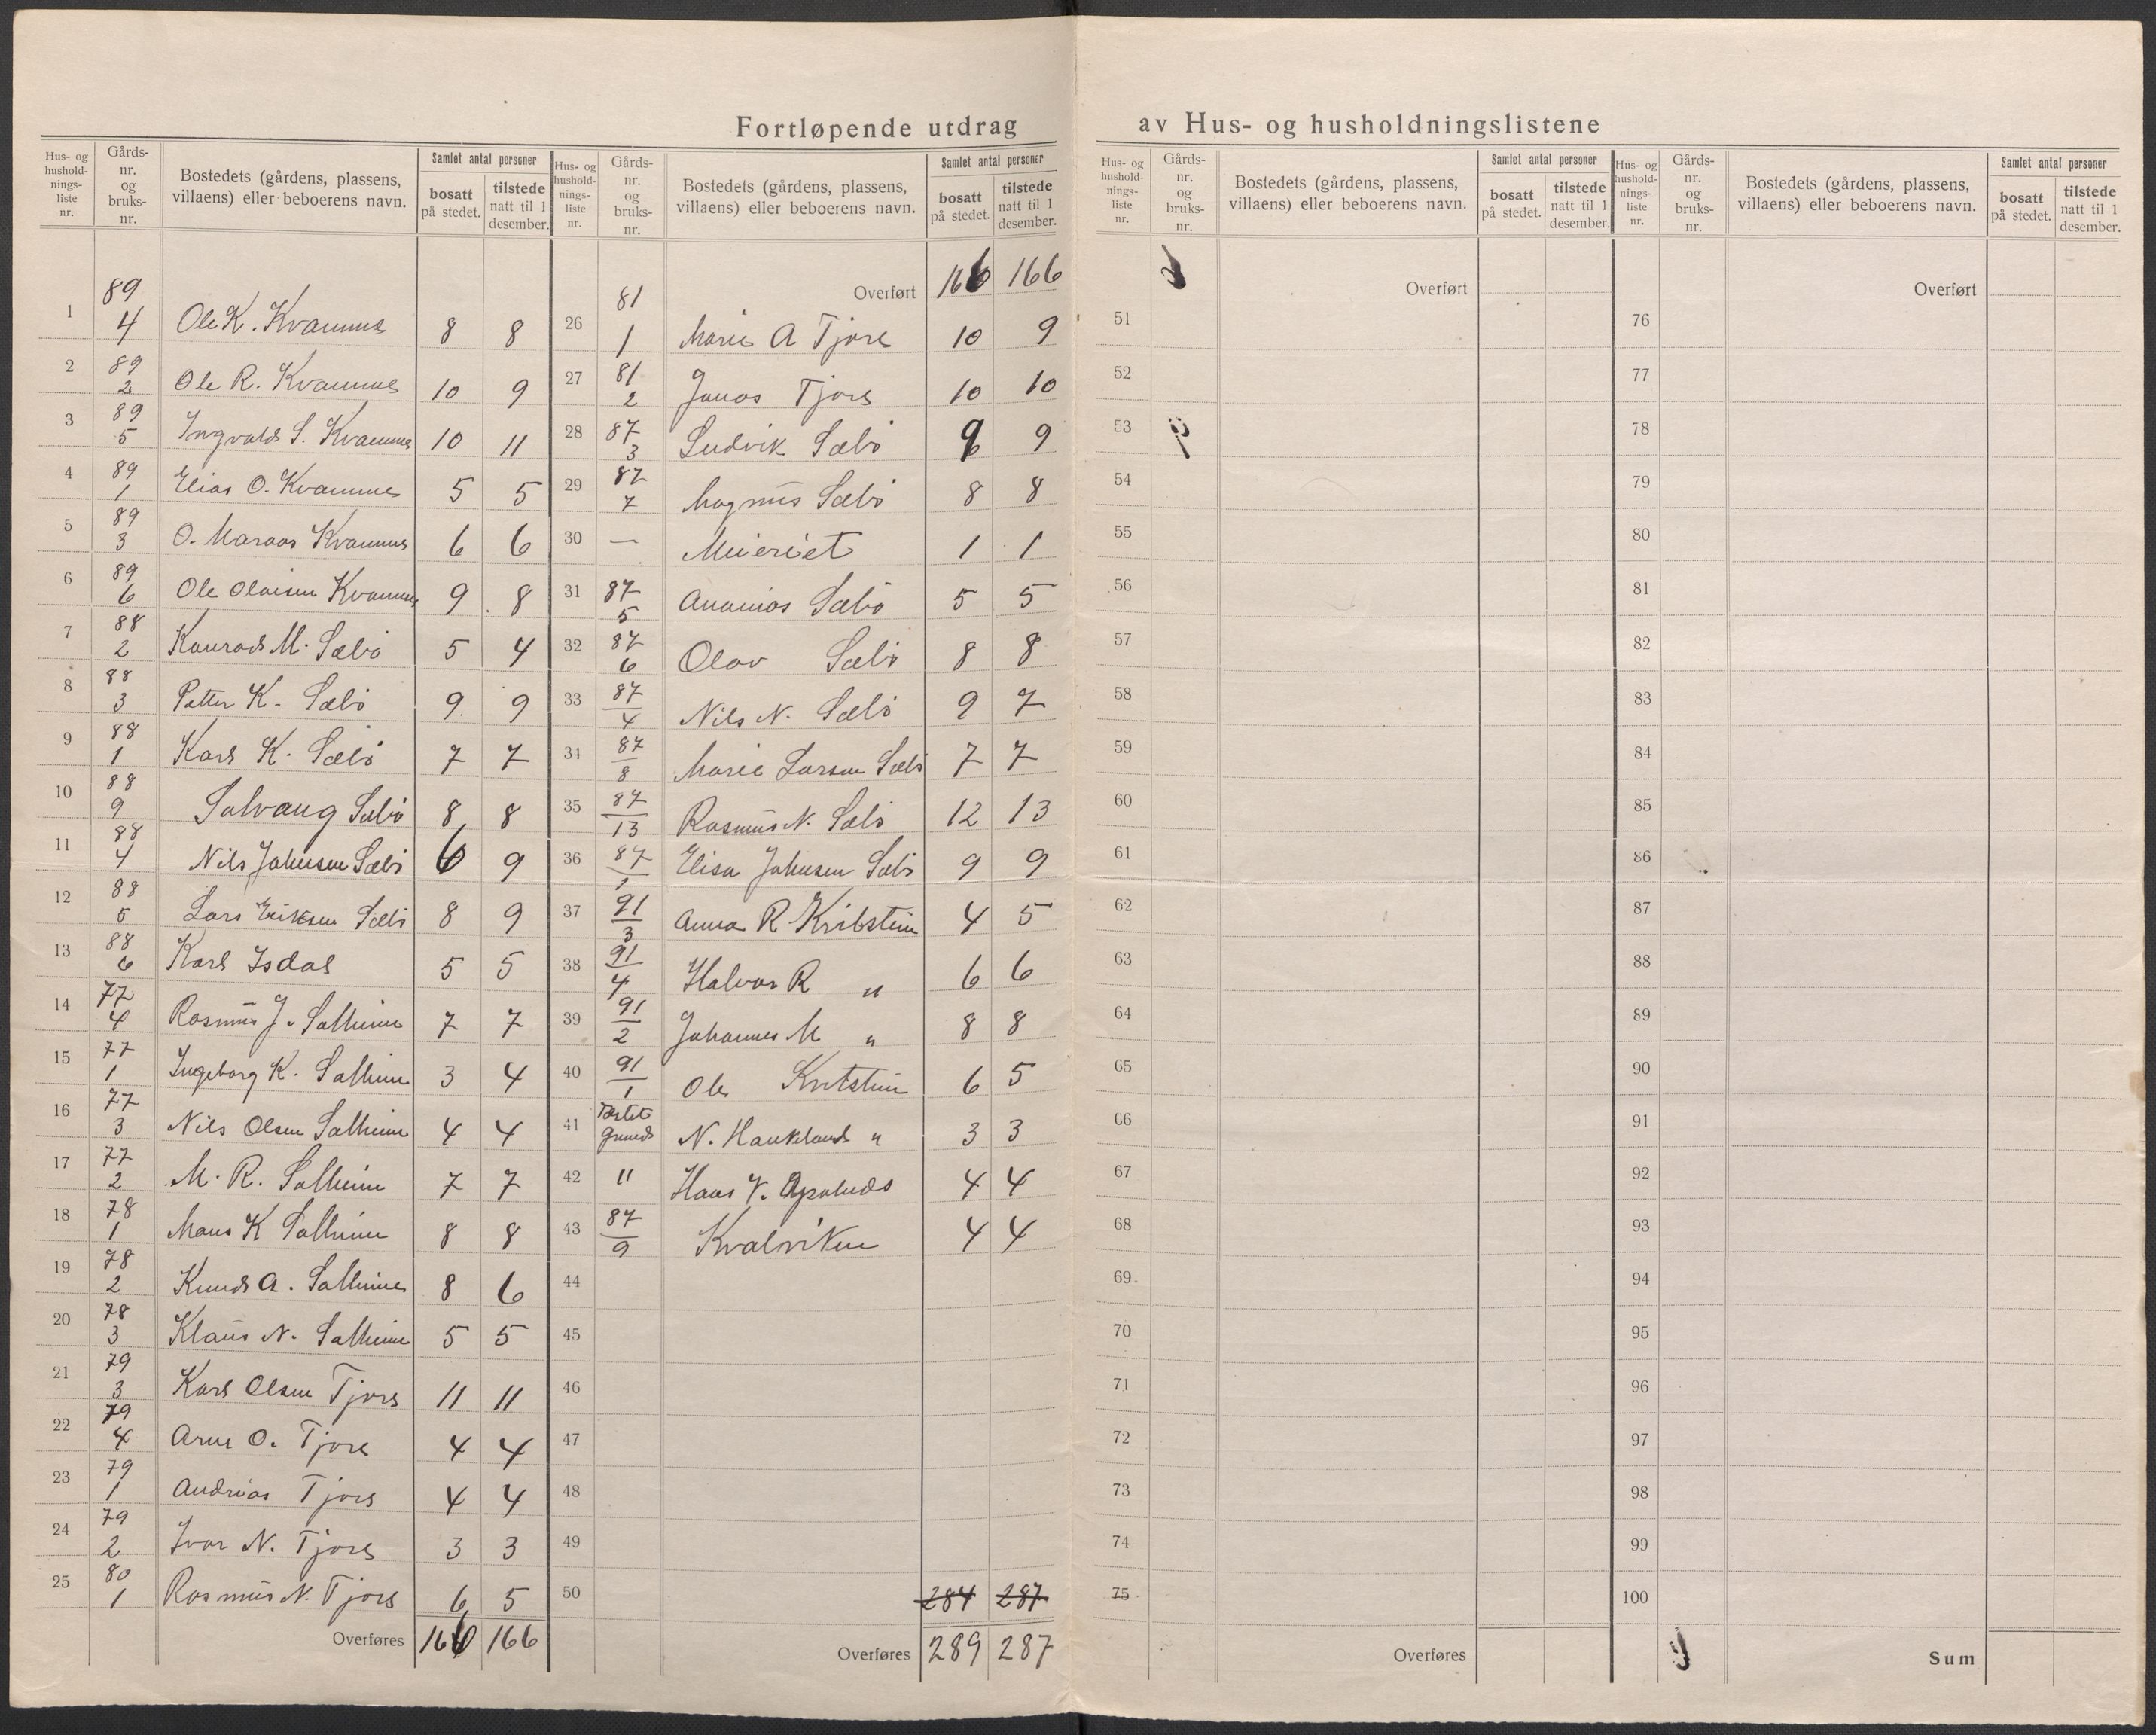 Fortløpende utdrag av Hus- og husholdningslistene
Hus- og husholdnings-liste nr. | Gårds-nr. og bruks-nr. | Bostedets (gårdens, plassens, villaens) eller beboerens navn. | Samlet antal personer | bosatt på stedet. | tilstede natt til 1 desember.
1 | 89 4 | Ole K. Kvamme | 8 | 8
2 | 89 2 | Ole R. Kvamme | 10 | 9
3 | 89 5 | Ingvald S. Kvamme | 10 | 11
4 | 89 1 | Elias O. Kvamme | 5 | 5
5 | 89 3 | O. Maraas Kvamme | 6 | 6
6 | 89 6 | Ole Olaisen Kvamme | 9 | 8
7 | 88 2 | Konrad M. Sæbø | 5 | 4
8 | 88 3 | Petter K. Sæbø | 9 | 9
9 | 88 1 | Karl K. Sæbø | 7 | 7
10 | 88 9 | Solvang Sæbø | 8 | 8
11 | 88 4 | Nils Johnsen Sæbø | 9
12 | 88 5 | Lars Eriksen Sæbø | 8 | 9
13 | 88 6 | Karl Isdal | 5 | 5
14 | 77 4 | Rasmus J. Solheim | 7 | 7
15 | 77 1 | Ingeborg K. Solheim | 3 | 4
16 | 77 3 | Nils Olsen Solheim | 4 | 4
17 | 77 2 | M. R. Solheim | 7 | 7
18 | 78 1 | Mons K Solheim | 8 | 8
19 | 78 2 | Knud A. Solheim | 8 | 6
20 | 78 3 | Klaus N. Solheim | 5 | 5
21 | 79 3 | Karl Olsen Tjore | 11 | 11
22 | 79 4 | Arne O. Tjore | 4 | 4
23 | 79 1 | Andreas Tjore | 4 | 4
24 | 79 2 | Ivar N. Tjore | 3 | 3
25 | 80 1 | Rasmus N. Tjore | 6 | 5
Overføres | 166
Hus- og husholdnings-liste nr. | Gårds-nr. og bruks-nr. | Bostedets (gårdens, plassens, villaens) eller beboerens navn. | Samlet antal personer | bosatt på stedet. | tilstede natt til 1 desember.
Overført | 166
26 | 81 1 | Marie A Tjore | 10 | 9
27 | 81 2 | Jonas Tjore | 10 | 10
28 | 87 3 | Ludvik Sæbø | 9 | 9
29 | 87 7 | Magnus Sæbø | 8 | 8
30 | — | Meieriet | 1 | 1
31 | 87 5 | Ananias Sæbø | 5 | 5
32 | 87 6 | Olav Sæbø | 8 | 8
33 | 87 4 | Nils N. Sæbø | 9 | 7
34 | 87 8 | Marie Larsen Sæbø | 7 | 7
35 | 87 13 | Rasmus N. Sæbø | 12 | 13
36 | 87 1 | Elisa Johnsen Sæbø | 9 | 9
37 | 91 3 | Anna R | 4 | 5
38 | 91 4 | Halvor R " | 6 | 6
39 | 91 2 | Johannes M " | 8 | 8
40 | 91 1 | Ole | 6 | 5
41 | N. Haukland " | 3 | 3
42 | " | Hans | 4 | 4
43 | 87 9 | Kvalviken | 4 | 4
44
45
46
47
48
49
50
284 | 287
Overføres | 289 | 287
Hus- og husholdnings-liste nr. | Gårds-nr. og bruks-nr. | Bostedets (gårdens, plassens, villaens) eller beboerens navn. | Samlet antal personer | bosatt på stedet. | tilstede natt til 1 desember.
Overført
51
52
53
54
55
56
57
58
59
60
61
62
63
64
65
66
67
68
69
70
71
72
73
74
75
Overføres
Hus- og husholdnings-liste nr. | Gårds-nr. og bruks-nr. | Bostedets (gårdens, plassens, villaens) eller beboerens navn. | Samlet antal personer | bosatt på stedet. | tilstede natt til 1 desember.
Overført
76
77
78
79
80
81
82
83
84
85
86
87
88
89
90
91
92
93
94
95
96
97
98
99
100
Sum